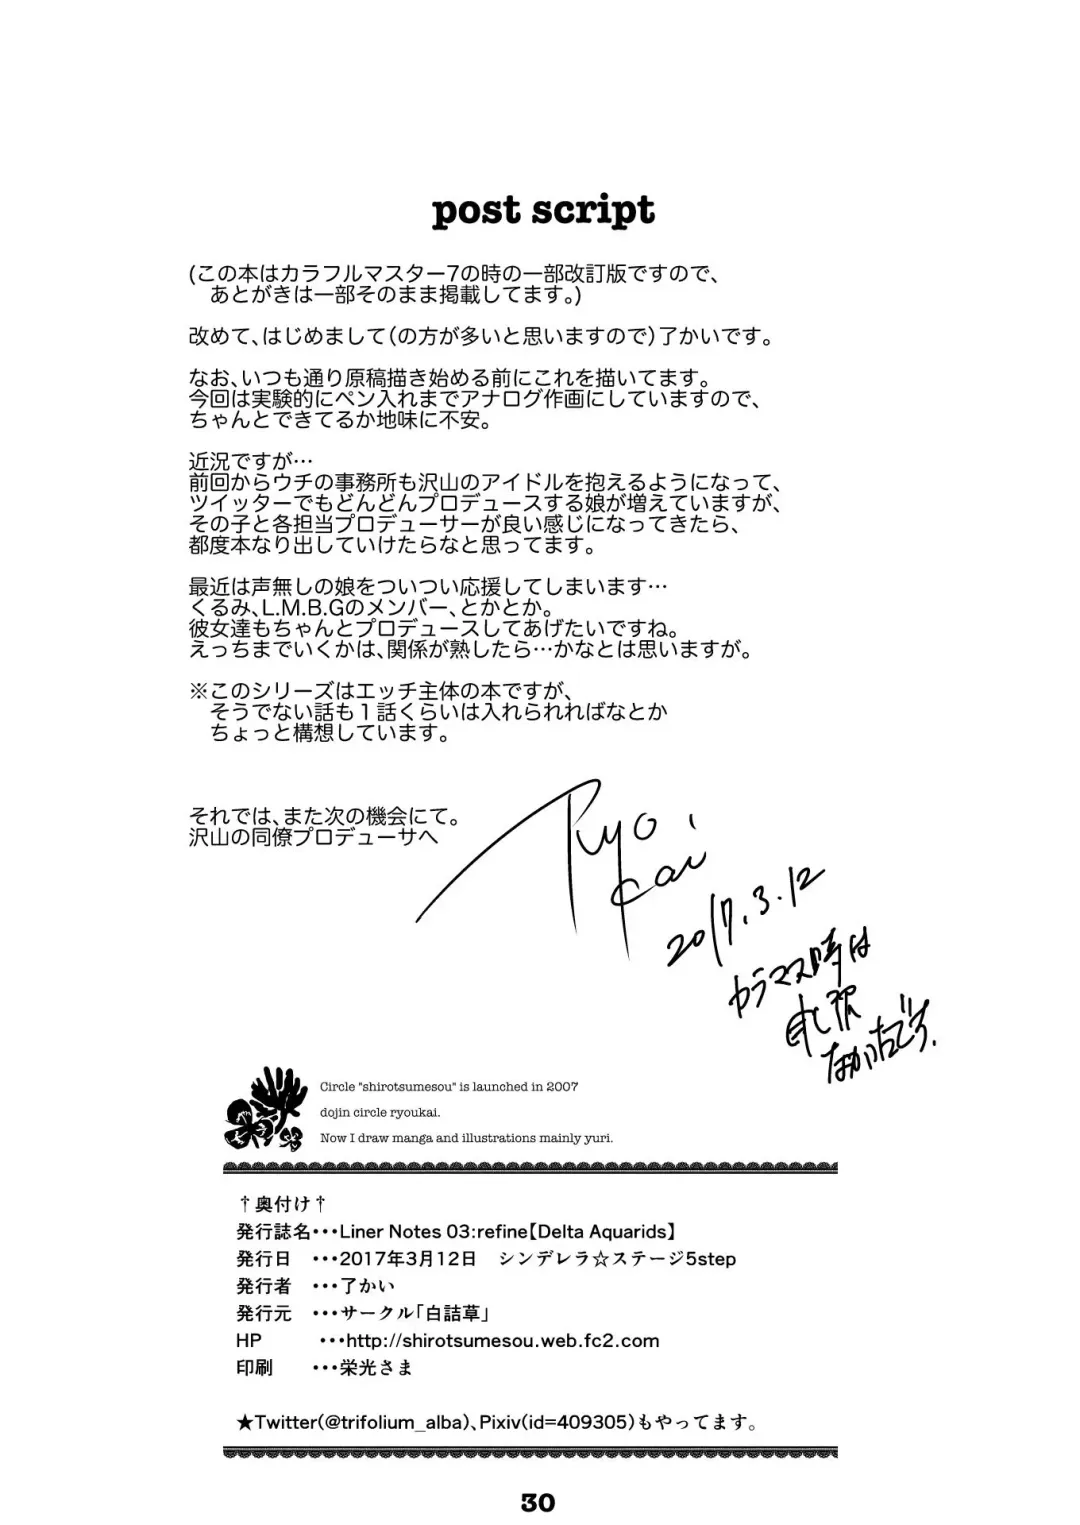 post script
(この本はカラフルマスター7の時の一部改訂版ですので、
あとがきは一部そのまま掲載してます。)
改めて、はじめまして(の方が多いと思いますので)了かいです。
なお、いつも通り原稿描き始める前にこれを描いてます。
今回は実験的にペン入れまでアナログ作画にしていますので、
ちゃんとできてるか地味に不安。
近況ですが…
前回からウチの事務所も沢山のアイドルを抱えるようになって、
ツイッターでもどんどんプロデュースする娘が増えていますが、
その子と各担当プロデューサーが良い感じになってきたら、
都度本なり出していけたらなと思ってます。
最近は声無しの娘をついつい応援してしまいます…
くるみ、L.M.B.Gのメンバー、とかとか。
彼女達もちゃんとプロデュースしてあげたいですね。
えっちまでいくかは、関係が熟したら…かなとは思いますが。
※このシリーズはエッチ主体の本ですが、
そうでない話も１話くらいは入れられればなとか
ちょっと構想しています。
それでは、また次の機会にて。
沢山の同僚プロデューサへ
Ryo
Kai
2017.3.12
カラマス時は
申し訳
なかったです.
Circle "shirotsumesou" is launched in 2007
dojin circle ryoukai.
Now I draw manga and illustrations mainly yuri.
†奥付け†
発行誌名・・・Liner Notes 03:refine【Delta Aquarids】
発行日 ・・・2017年3月12日 シンデレラ☆ステージ5step
発行者 ・・・了かい
発行元 ・・・サークル「白詰草」
HP ・・・http://shirotsumesou.web.fc2.com
印刷 ・・・栄光さま
★Twitter(@trifolium_alba)、Pixiv(id=409305)もやってます。
30